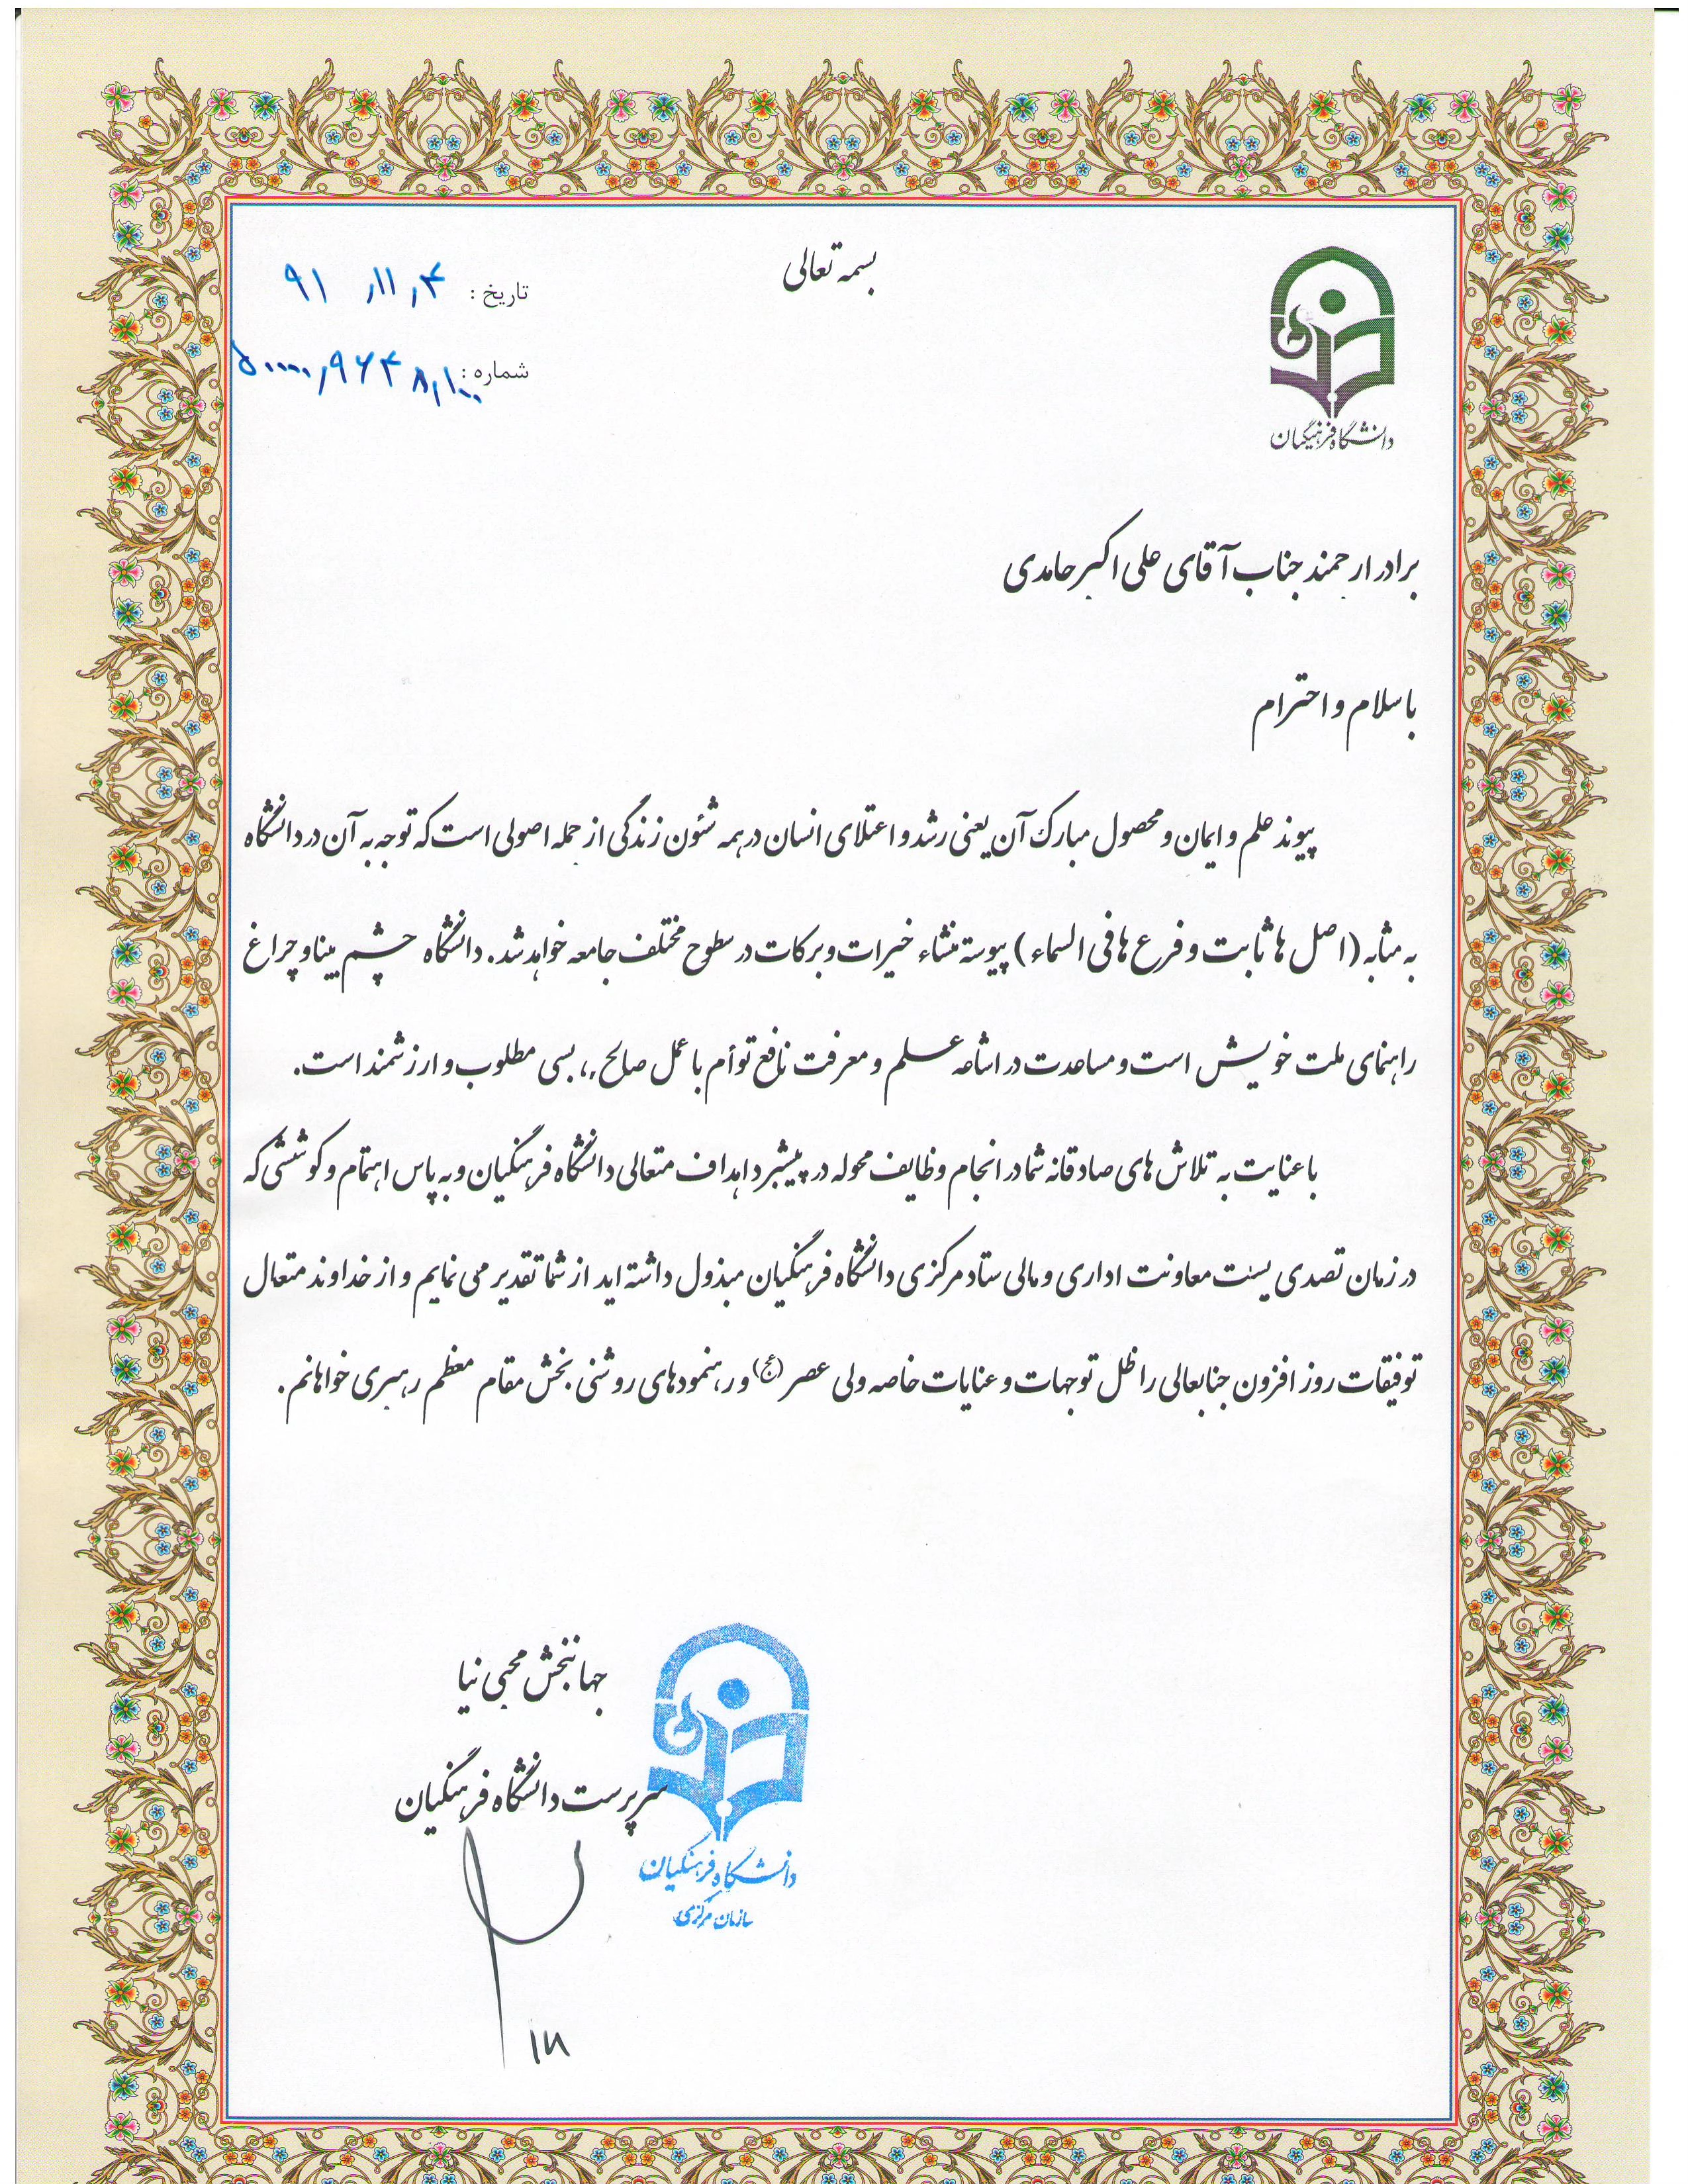 بسمه تعالی
تاریخ : ۹۱ ,۱۱ ,۴
شماره : ۵۰۰۰۰,۹۶۴۸,۱۰۰
دانشگاه فرهنگیان
برادر ارجمند جناب آقای علی اکبر حامدی
با سلام و احترام
پیوند علم و ایمان و محصول مبارک آن یعنی رشد و اعتلای انسان در همه شئون زندگی از جمله اصولی است که توجه به آن در دانشگاه
به مثابه (اصل ها ثابت و فرع ها فی السماء) پیوسته منشاء خیرات و برکات در سطوح مختلف جامعه خواهد شد. دانشگاه چشم بینا و چراغ
راهنمای ملت خویش است و مساعدت در اشاعه علم و معرفت نافع توأم با عمل صالح ،، بسی مطلوب و ارزشمند است.
با عنایت به تلاش های صادقانه شما در انجام وظایف محوله در پیشبرد اهداف متعالی دانشگاه فرهنگیان و به پاس اهتمام و کوششی که
در زمان تصدی پست معاونت اداری و مالی ستاد مرکزی دانشگاه فرهنگیان مبذول داشته اید از شما تقدیر می نمایم و از خداوند متعال
توفیقات روز افزون جنابعالی را ظل توجهات و عنایات خاصه ولی عصر (عج) و رهنمودهای روشنی بخش مقام معظم رهبری خواهانم.
جهانبخش محبی نیا
سرپرست دانشگاه فرهنگیان
دانشگاه فرهنگیان
سازمان مرکزی